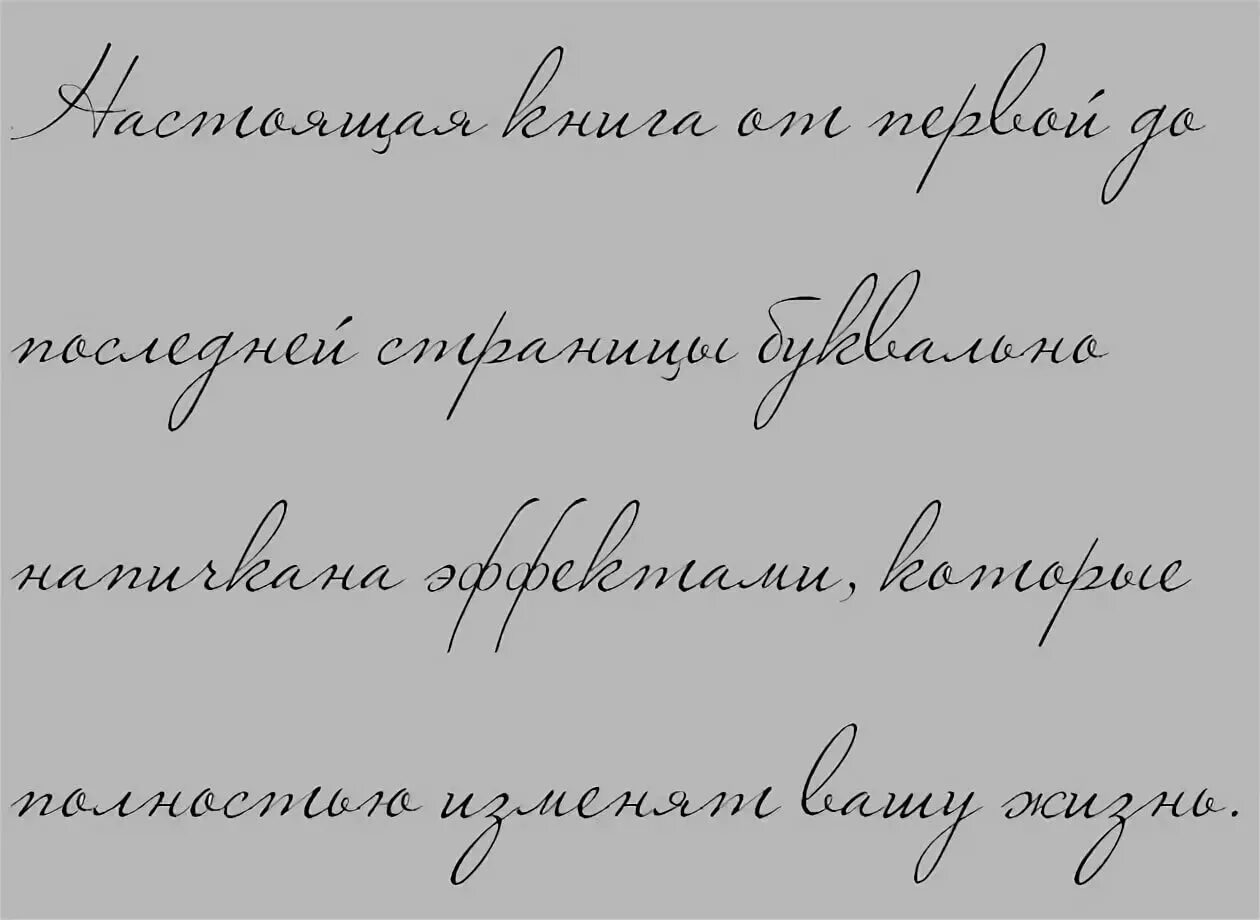 Настоящая книга от первой до
последней страницы буквально
напичкана эффектами, которые
полностью изменят вашу жизнь.